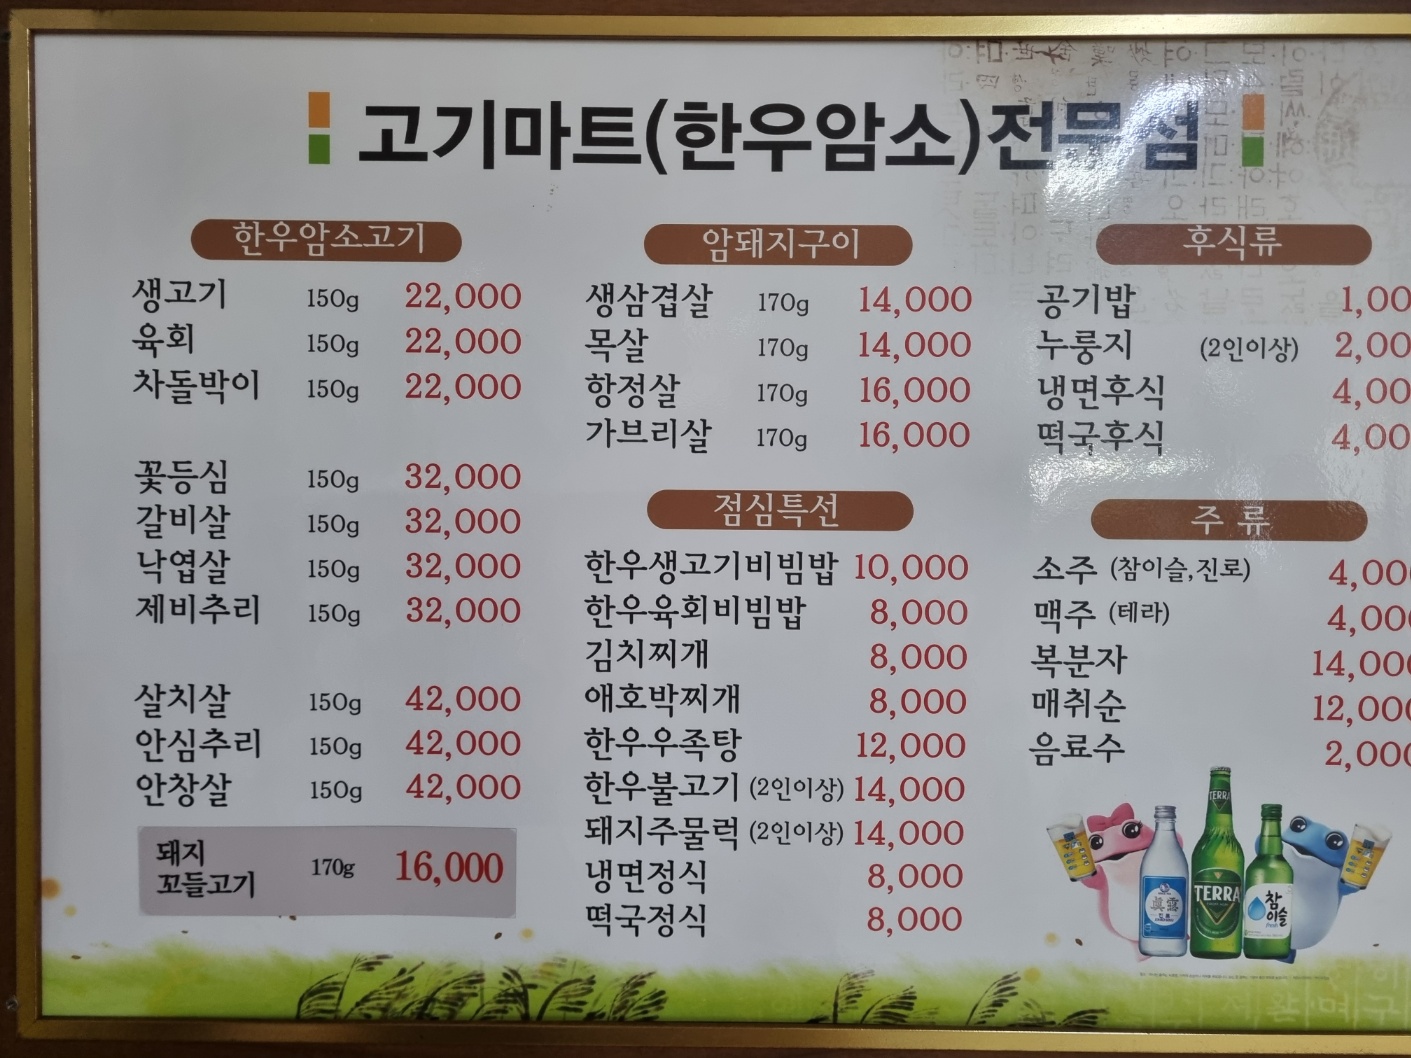 고기마트(한우암소)전문점
한우암소고기
생고기 150g 22,000
육회 150g 22,000
차돌박이 150g 22,000
꽃등심 150g 32,000
갈비살 150g 32,000
낙엽살 150g 32,000
제비추리 150g 32,000
살치살 150g 42,000
안심추리 150g 42,000
안창살 150g 42,000
돼지
꼬들고기 170g 16,000
암돼지구이
생삼겹살 170g 14,000
목살 170g 14,000
항정살 170g 16,000
가브리살 170g 16,000
점심특선
한우생고기비빔밥 10,000
한우육회비빔밥 8,000
김치찌개 8,000
애호박찌개 8,000
한우우족탕 12,000
한우불고기 (2인이상) 14,000
돼지주물럭 (2인이상) 14,000
냉면정식 8,000
떡국정식 8,000
후식류
공기밥 1,00
누룽지 (2인이상) 2,00
냉면후식 4,00
떡국후식 4,00
주 류
소주 (참이슬,진로) 4,00
맥주 (테라) 4,000
복분자 14,000
매취순 12,000
음료수 2,000
TERRA
TERRA
眞露
참
이슬
fresh